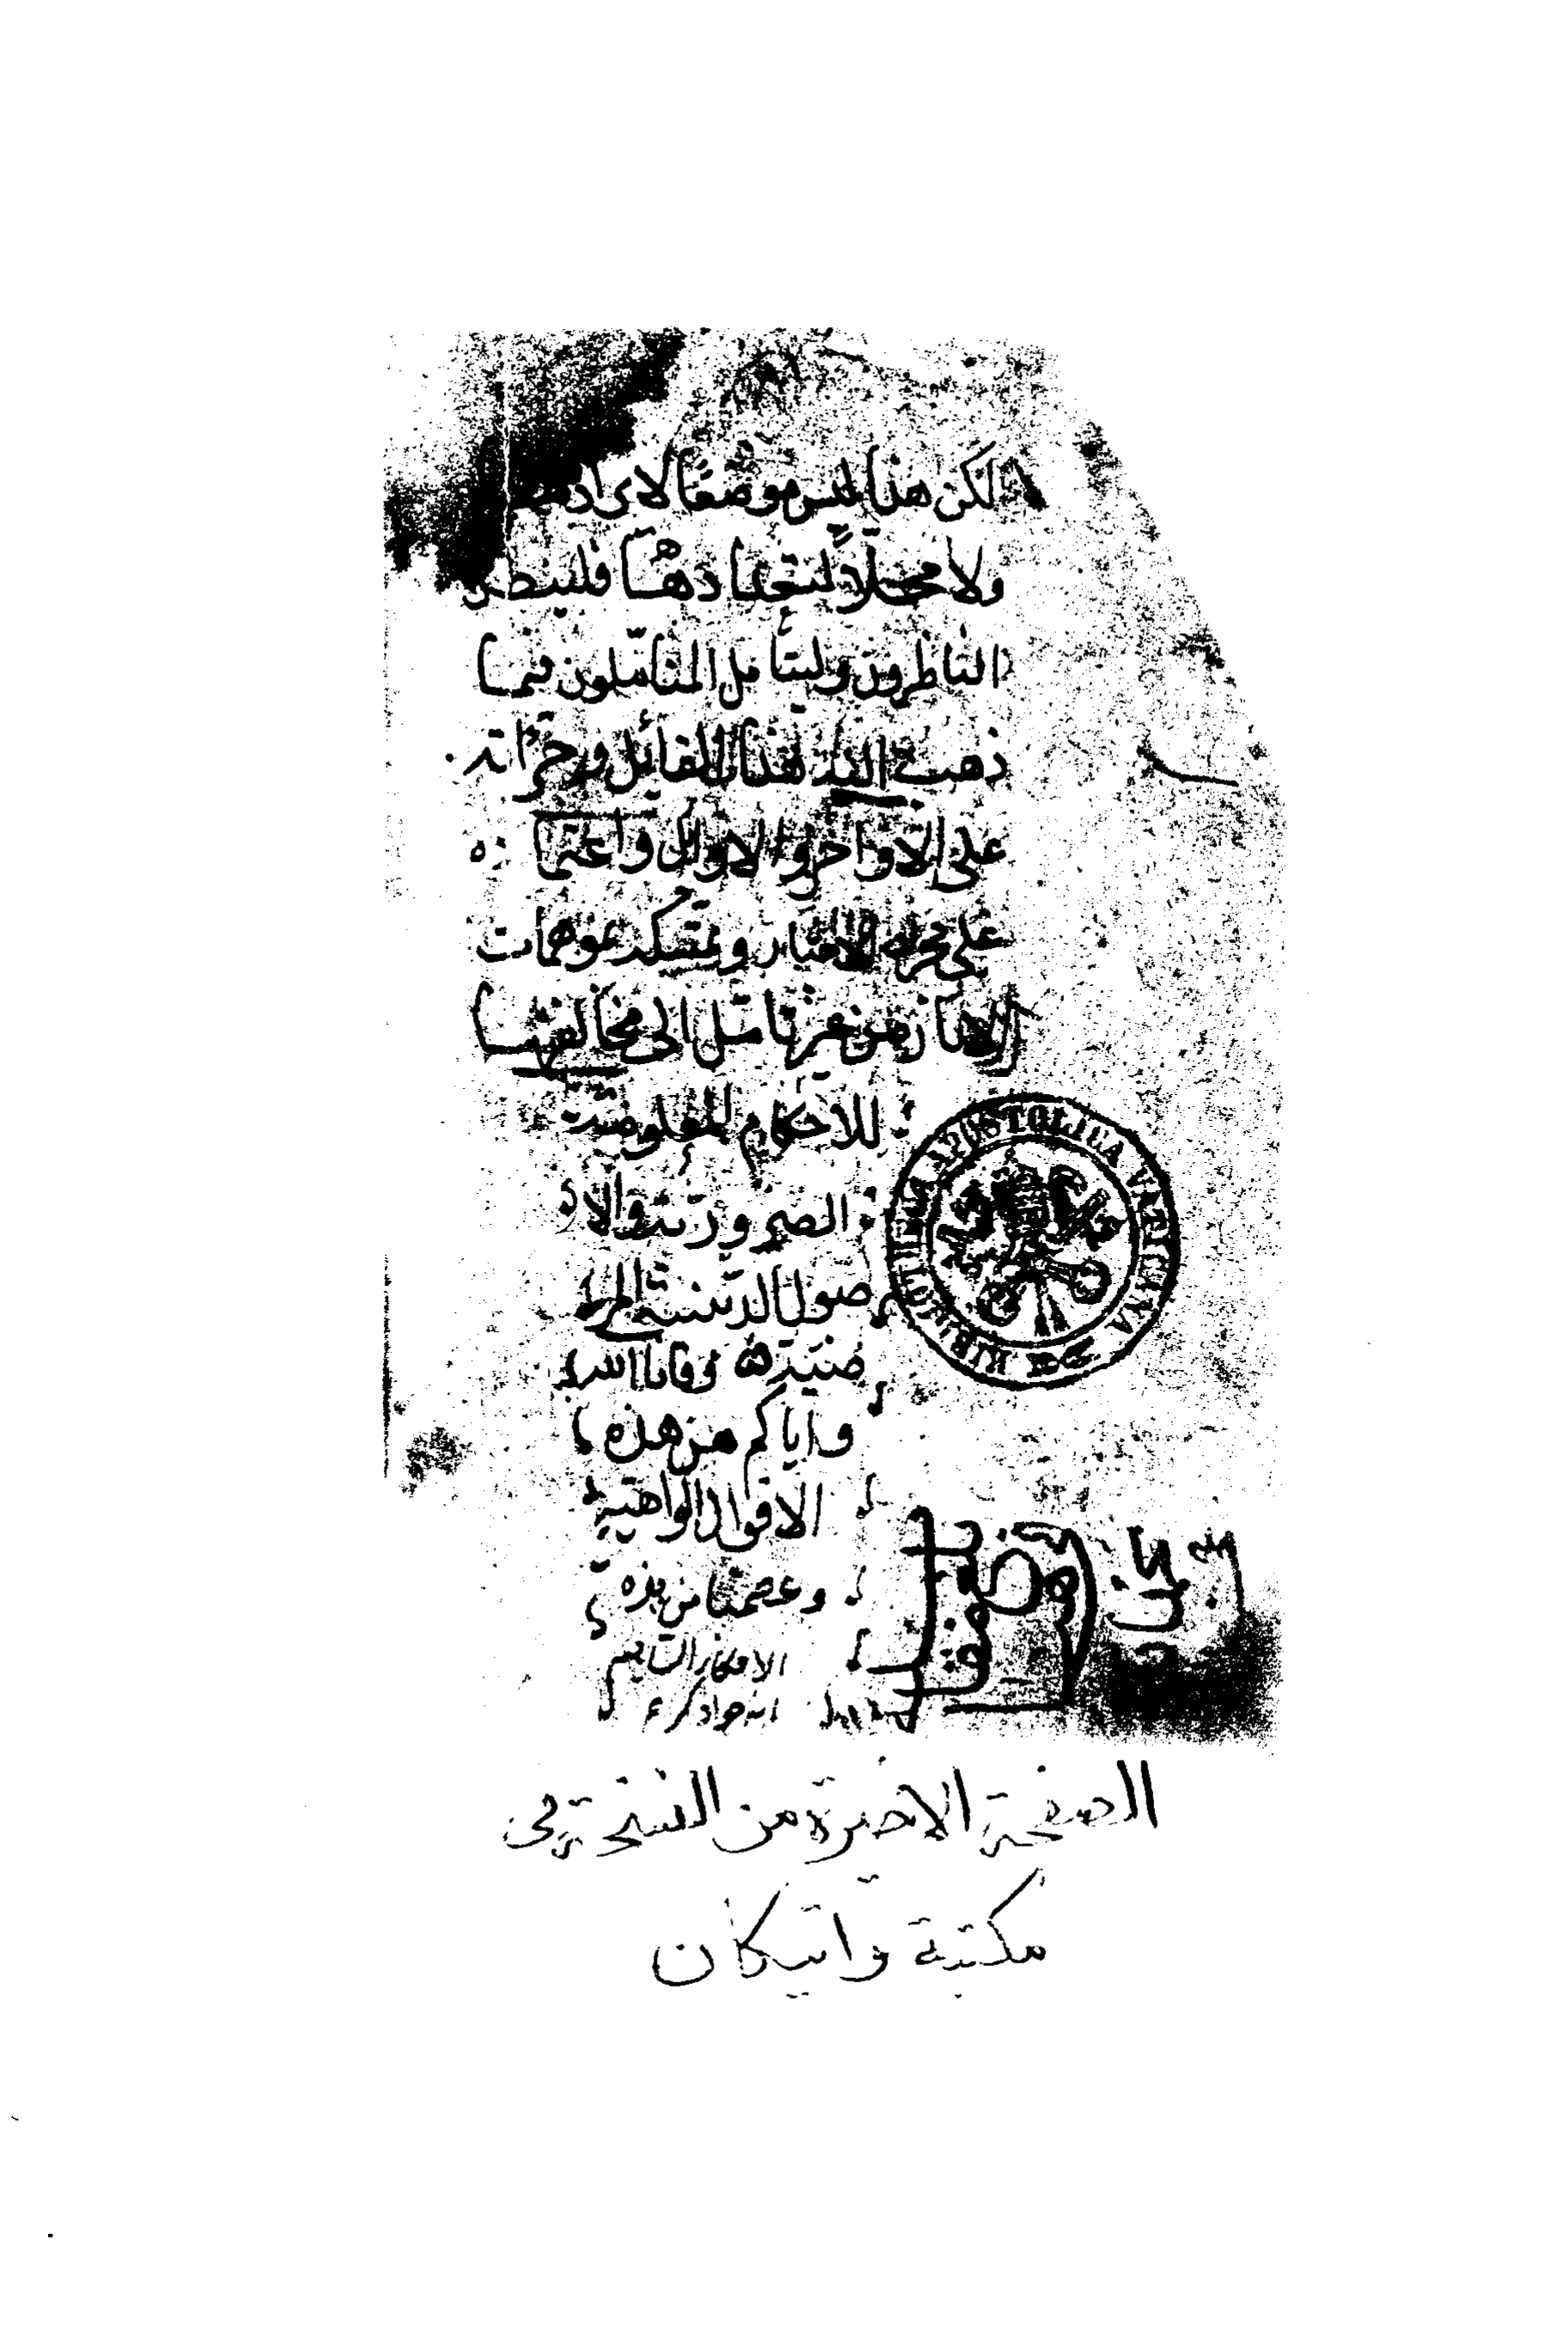 لكن هذا ليس موضعًا لايرادها
ولا محلّا لتعدادها فلينظر
الناظرون وليتأمل المتأمّلون فيما
ذهب اليه هذا القائل وجرأته
على الأواخر والاوائل واعتماده
على مجرد الاخبار وتمسكه بموهمات
من غير تأمل الى مخالفتها
للاحكام
الضروريّة والا
صول الدّينيّة المر
ضيّة وقانا الله
واياكم من هذه
الاقوال الواهية
وعصمنا من هذه
الافكار
انه جواد كريم
BIBLIOTHECA APOSTOLICA VATICANA
الصفحة الاخيرة من النسخة في
مكتبة واتيكان